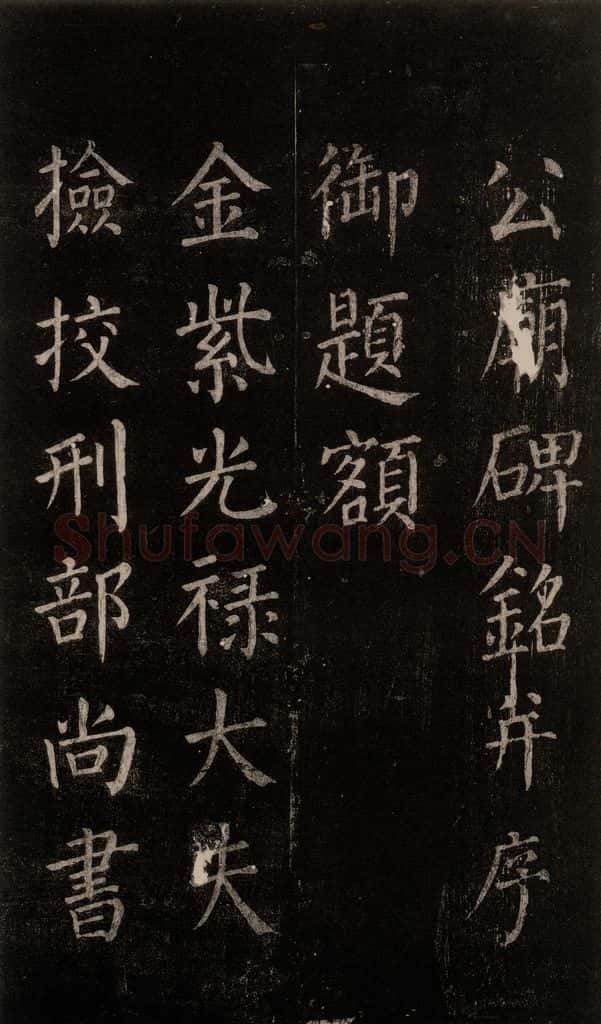 公廟碑銘并序
御題額
金紫光禄大夫
撿挍刑部尚書
Shufawang.CN